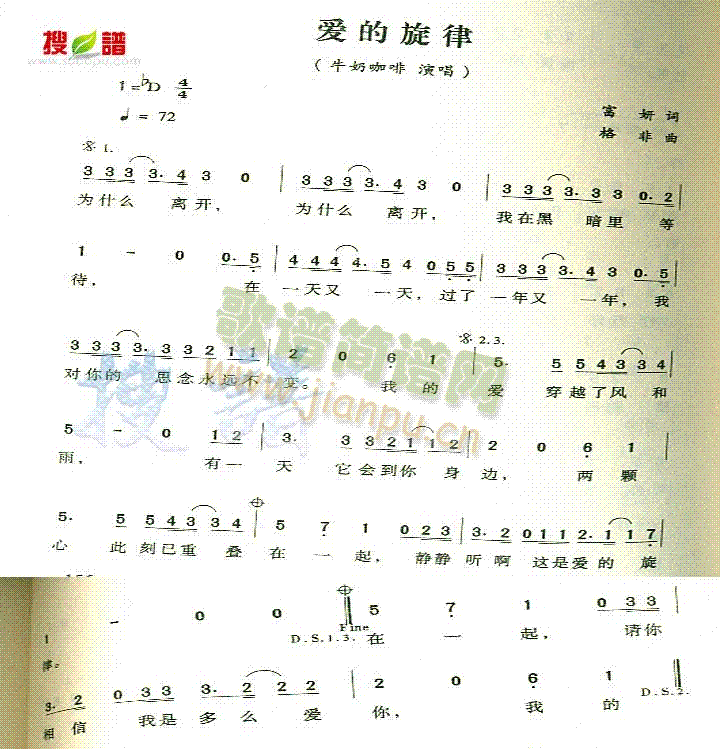 搜谱
www.sooopu.com
爱的旋律
（牛奶咖啡 演唱）
1=♭D 4/4
♩= 72
富妍 词
格非 曲
𝄋 1.
3 3 3 3. 4 3 0 | 3 3 3 3. 4 3 0 | 3 3 3 3. 3 3 0. 2 |
为什么 离开， 为什么 离开， 我在黑 暗里 等
1 - 0 0. 5 | 4 4 4 4. 5 4 0 5 5 | 3 3 3 3. 4 3 0. 5 |
待， 在 一天又 一天，过了 一年又 一年，我
𝄋 2.3.
3 3 3 3. 3 3 2 1 1 | 2 0 6 1 | 5. 5 5 4 3 3 4
对你的 思念永远不 变。 我的 爱 穿越了风和
5 - 0 1 2 | 3. 3 3 2 1 1 2 | 2 0 6 1 |
雨， 有一 天 它会到你 身 边， 两颗
5. 5 5 4 3 3 4 | 5 7 1 0 2 3 | 3. 2 0 1 1 2. 1 1 7 |
心 此刻已重 叠 在 一 起，静静 听啊 这是爱的 旋
1 - 0 0 | 5 7 1 0 3 3 |
Fine
D.S.1.3.
律。 在 一 起， 请你
3. 2 0 3 3 3. 2 2 2 | 2 0 6 1 |
D.S.2.
相信 我是 多 么 爱 你， 我 的
歌谱简谱网
www.jianpu.cn